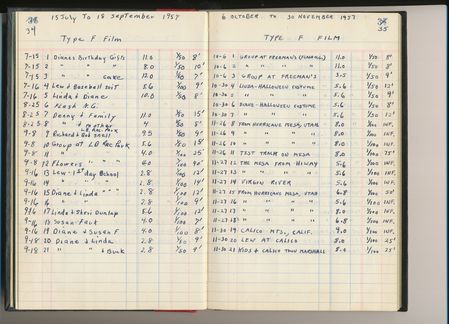 15 July To 18 September 1957
34
Type F Film
7-15 1 Dianes Birthday Gifts 11.0 1/50 8'
7-15 2 " " " 8.0 1/50 10'
7-15 3 " " cake 12.0 1/50 7'
7-16 4 Lew + Baseball suit 5.6 1/100 9'
7-16 5 Linda + Diane 10.0 1/50 8'
8-25 6 Nash K.G.
8-25 7 Denny + Family 11.0 1/50 15'
8-25 8 " + mother 4 1/50 5'
9-8 9 Richard + Rod Snell 9.5 1/50 9'
9-8 10 Group at LB Rec Park 5.6 1/50 18'
9-8 11 " " 4.0 1/100 25'
9-8 12 Flowers " " " 6.0 1/100 20"
9-16 13 Lew - 1st day School 2.8 1/100 12'
9-16 14 " " 2.8 1/100 14'
9-16 15 Diane + Linda " " " 2.8 1/100 12'
9-16 16 " " 2.8 1/100 9'
9-16 17 Linda + Sheri Dunlop 5.6 1/100 12'
9-16 18 Susan-Faut 4.0 1/100 7'
9-16 19 Diane + Susan F 4.0 1/100 8'
9-18 20 Diane + Linda 2.8 1/50 9'
9-18 21 " " + Buck 2.8 1/50 7'
6 October to 30 November 1957
35
Type F Film
10-6 1 Group at Freeman's (Funeral) 11.0 1/50 8'
10-6 2 " " " 11.0 1/50 8'
10-6 3 Group at Freeman's 3.5 1/50 9'
10-30 4 Linda-Halloween costume 5.6 1/50 12'
10-30 5 " " " 5.6 1/50 9'
10-30 6 Diane-Halloween costume 5.6 1/50 7'
10-30 7 " " " 5.6 1/50 12'
11-26 8 From Hurricane Mesa, Utah 8.0 1/100 INF.
11-26 9 " " " " 8.0 1/100 INF.
11-26 10 " " " " 8.0 1/100 INF.
11-26 11 Test Track on Mesa 8.0 1/100 75'
11-27 12 The Mesa from Hiway 5.6 1/100 INF.
11-27 13 " " " " 5.6 1/100 INF.
11-27 14 Virgin River 5.6 1/100 INF.
11-27 15 From Hurricane Mesa, Utah 6.8 1/100 50'
11-27 16 " " " " 5.6 1/100 INF.
11-27 17 " " " " 8.0 1/100 INF.
11-27 18 " " " " 6.8 1/100 INF.
11-30 19 Calico Mts., Calif. 9.0 1/100 INF.
11-30 20 Lew at Calico 8.0 1/100 25'
11-30 21 Kids + Calico Town Marshall 5.0 1/100 25'